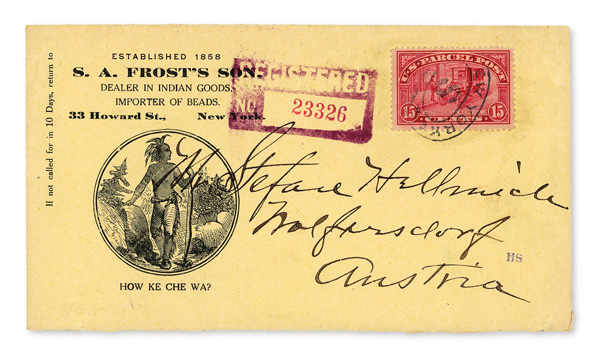 If not called for in 10 Days, return to
ESTABLISHED 1858
S. A. FROST'S SON,
DEALER IN INDIAN GOODS,
IMPORTER OF BEADS.
33 Howard St., New York.
REGISTERED
NO. 23326
U.S. PARCEL POST
15 CENTS 15
H. Stefan Hellmich
Wolfersdorf
Austria
HS
HOW KE CHE WA?